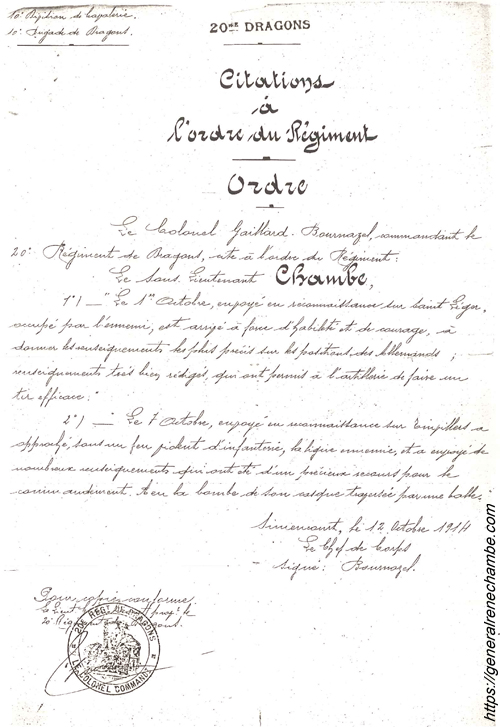 10e Division de Cavalerie.
10e Brigade de Dragons.
20ME DRAGONS
Citations
à
l'ordre du Régiment
Ordre
Le Colonel Gaillard-Bournazel, commandant le
20e Régiment de Dragons, cite à l'ordre du Régiment:
Le Sous-Lieutenant Chambe,
1°) — "Le 1er Octobre, envoyé en reconnaissance sur Saint Léger,
occupé par l'ennemi, est arrivé à force d'habileté et de courage, à
donner les renseignements les plus précis sur les positions des Allemands;
renseignements très bien rédigés, qui ont permis à l'artillerie de faire un
tir efficace."
2°) — Le 7 Octobre, envoyé en reconnaissance sur a
approché, sous un feu violent d'infanterie, la ligne ennemie, et a envoyé de
nombreux renseignements qui ont été d'un précieux secours pour le
commandement. A eu la bombe de son casque traversée par une balle.
Simencourt, le 12 Octobre 1914
Le Chef de Corps
Signé: Bournazel.
Pour copie conforme
20e Dragons.
20E REGT DE DRAGONS
LE COLONEL COMMANDT
https://generalrenechambe.com